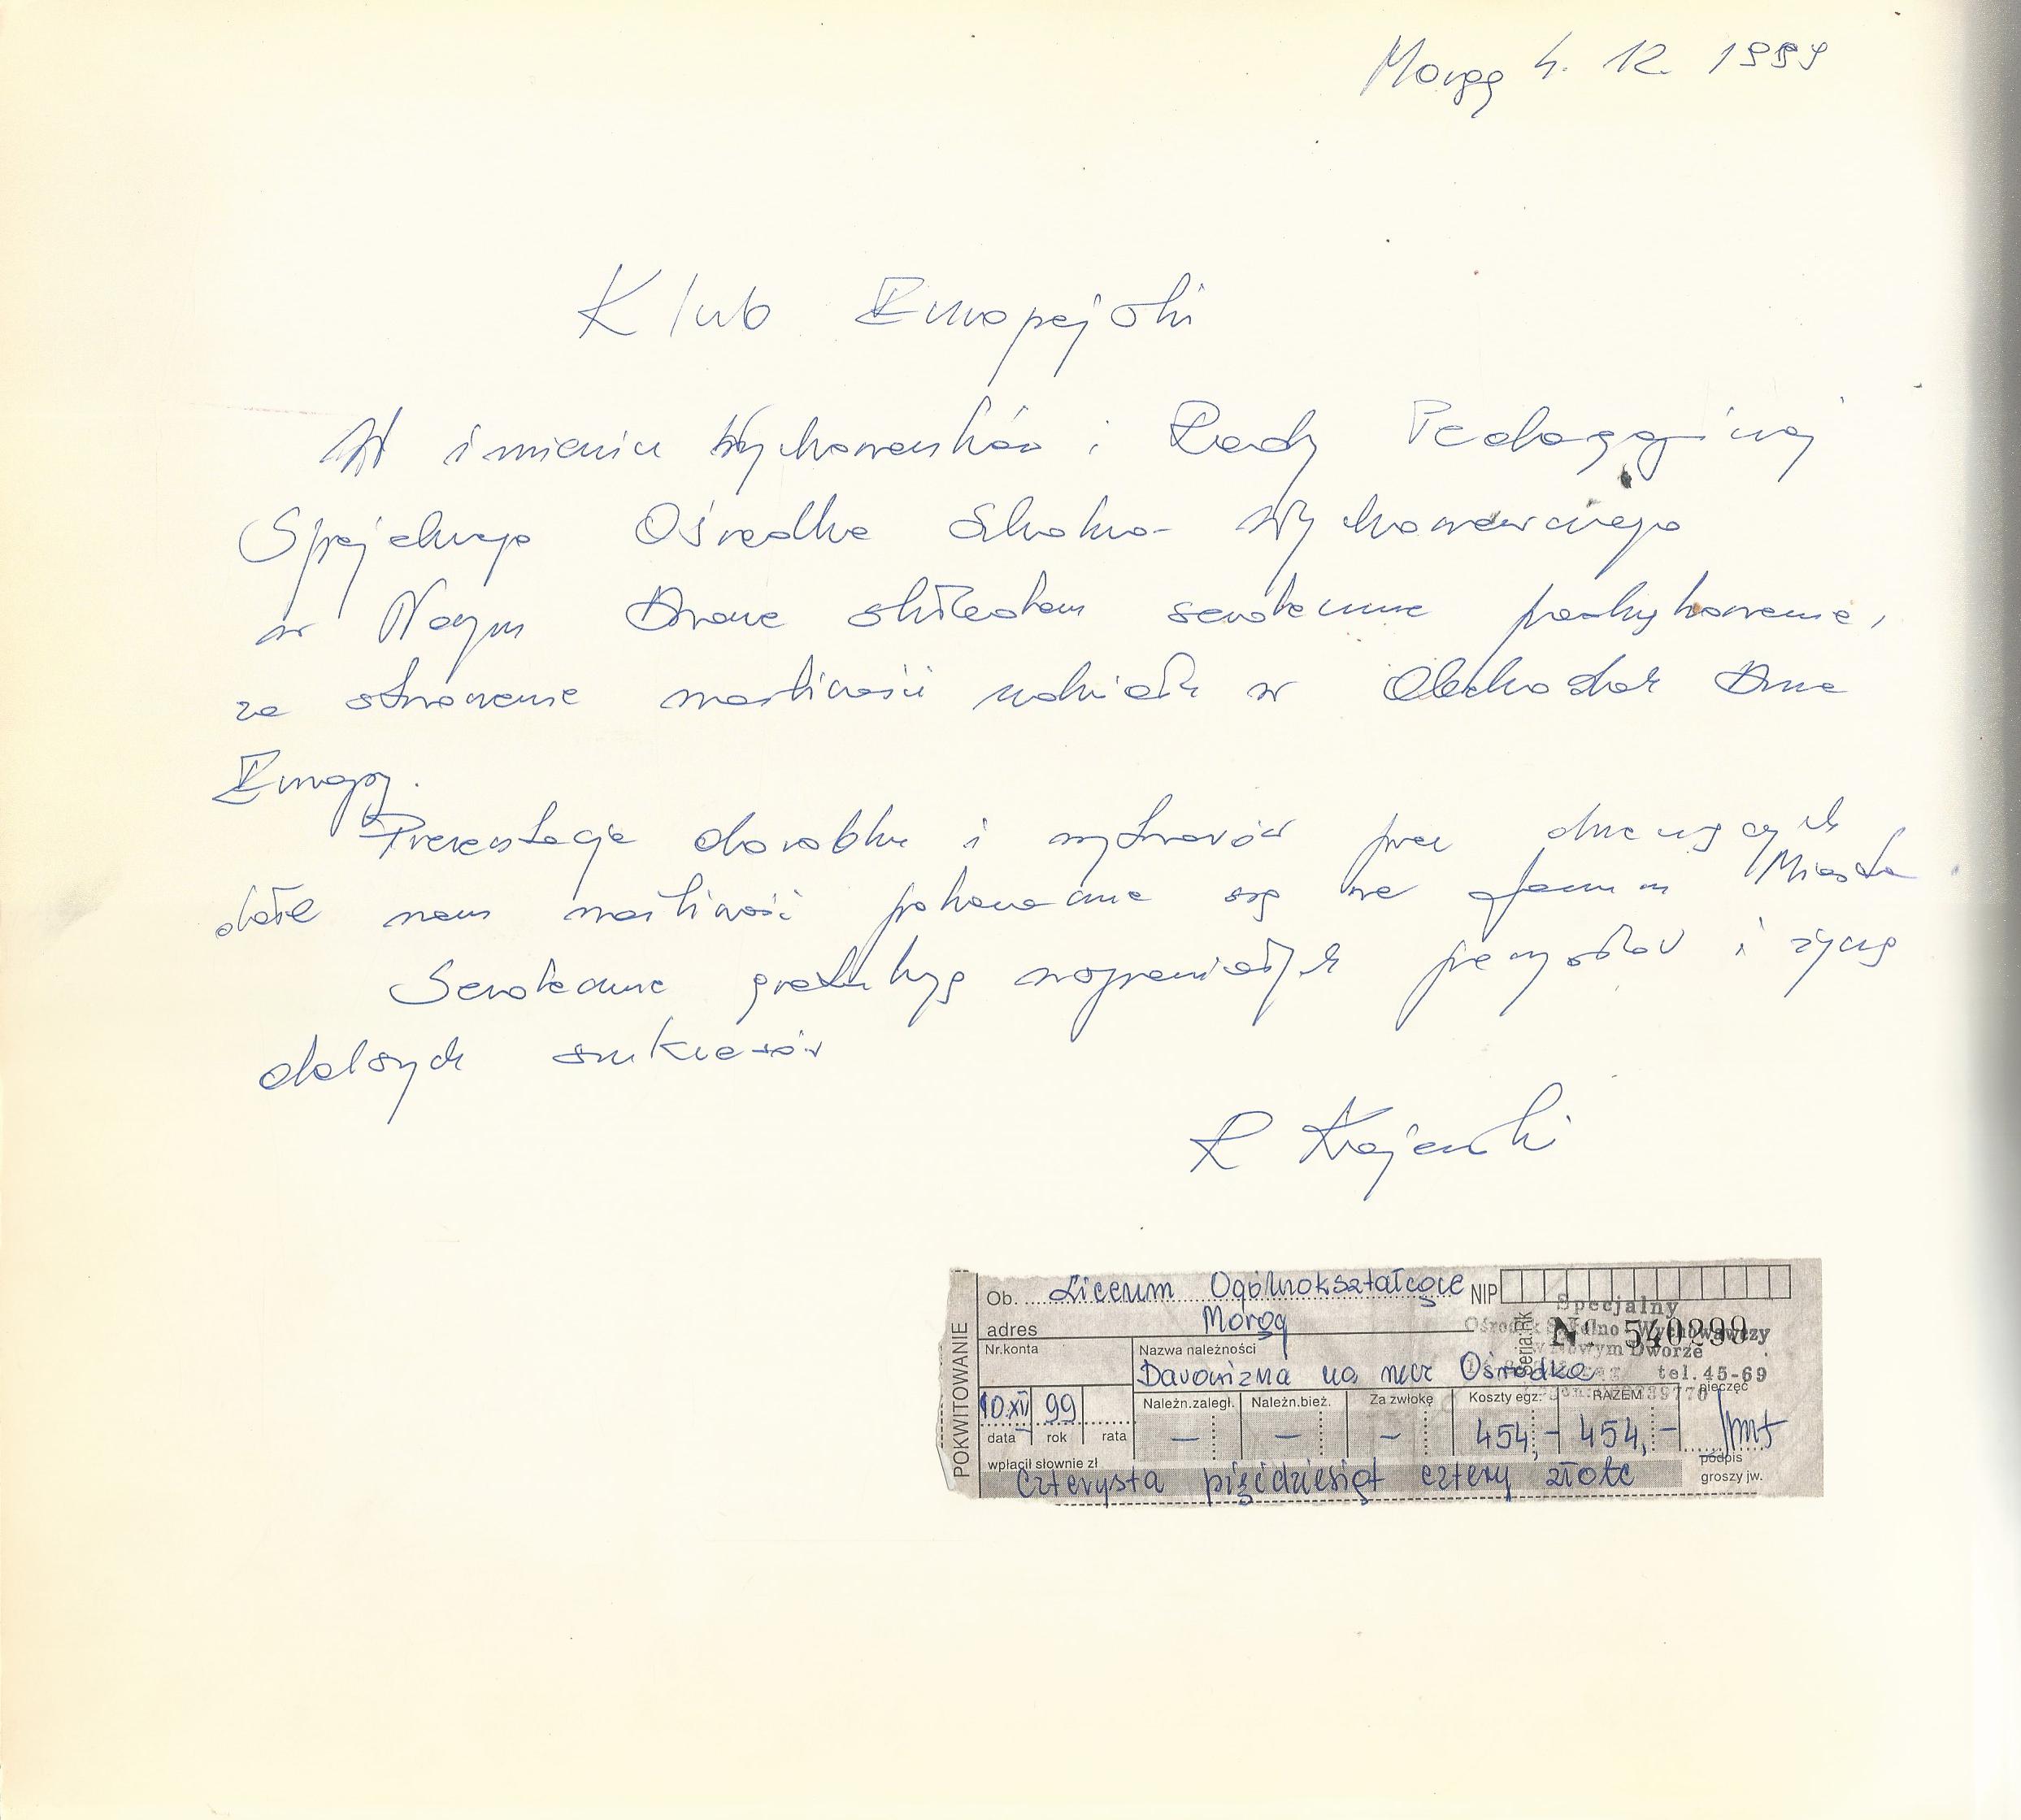 Morąg 4. 12. 1999
Klub Europejski
W imieniu Wychowanków i Rady Pedagogicznej
Specjalnego Ośrodka Szkolno-Wychowawczego
w Nowym Dworze składam serdeczne podziękowanie,
za stworzenie możliwości udziału w Obchodach Dnia
Europy.
Prezentacja dorobku i wytworów prac
dała nam możliwość pokazania się na forum Miasta
Serdecznie gratuluję wspaniałych pomysłów i życzę
dalszych sukcesów
R Krajewski
POKWITOWANIE
Ob. Liceum Ogólnokształcące NIP
adres Morąg
Specjalny
Ośrodek Szkolno-Wychowawczy
w Nowym Dworze
tel. 45-69
Seria: Rk Nr 540299
Nr.konta Nazwa należności
Darowizna na rzecz Ośrodka
10.XII 99
data rok rata
Należn.zaległ. Należn.bież. Za zwłokę Koszty egz. RAZEM pieczęć
— — — 454,- 454,-
podpis
wpłacił słownie zł groszy jw.
czterysta pięćdziesiąt cztery złote